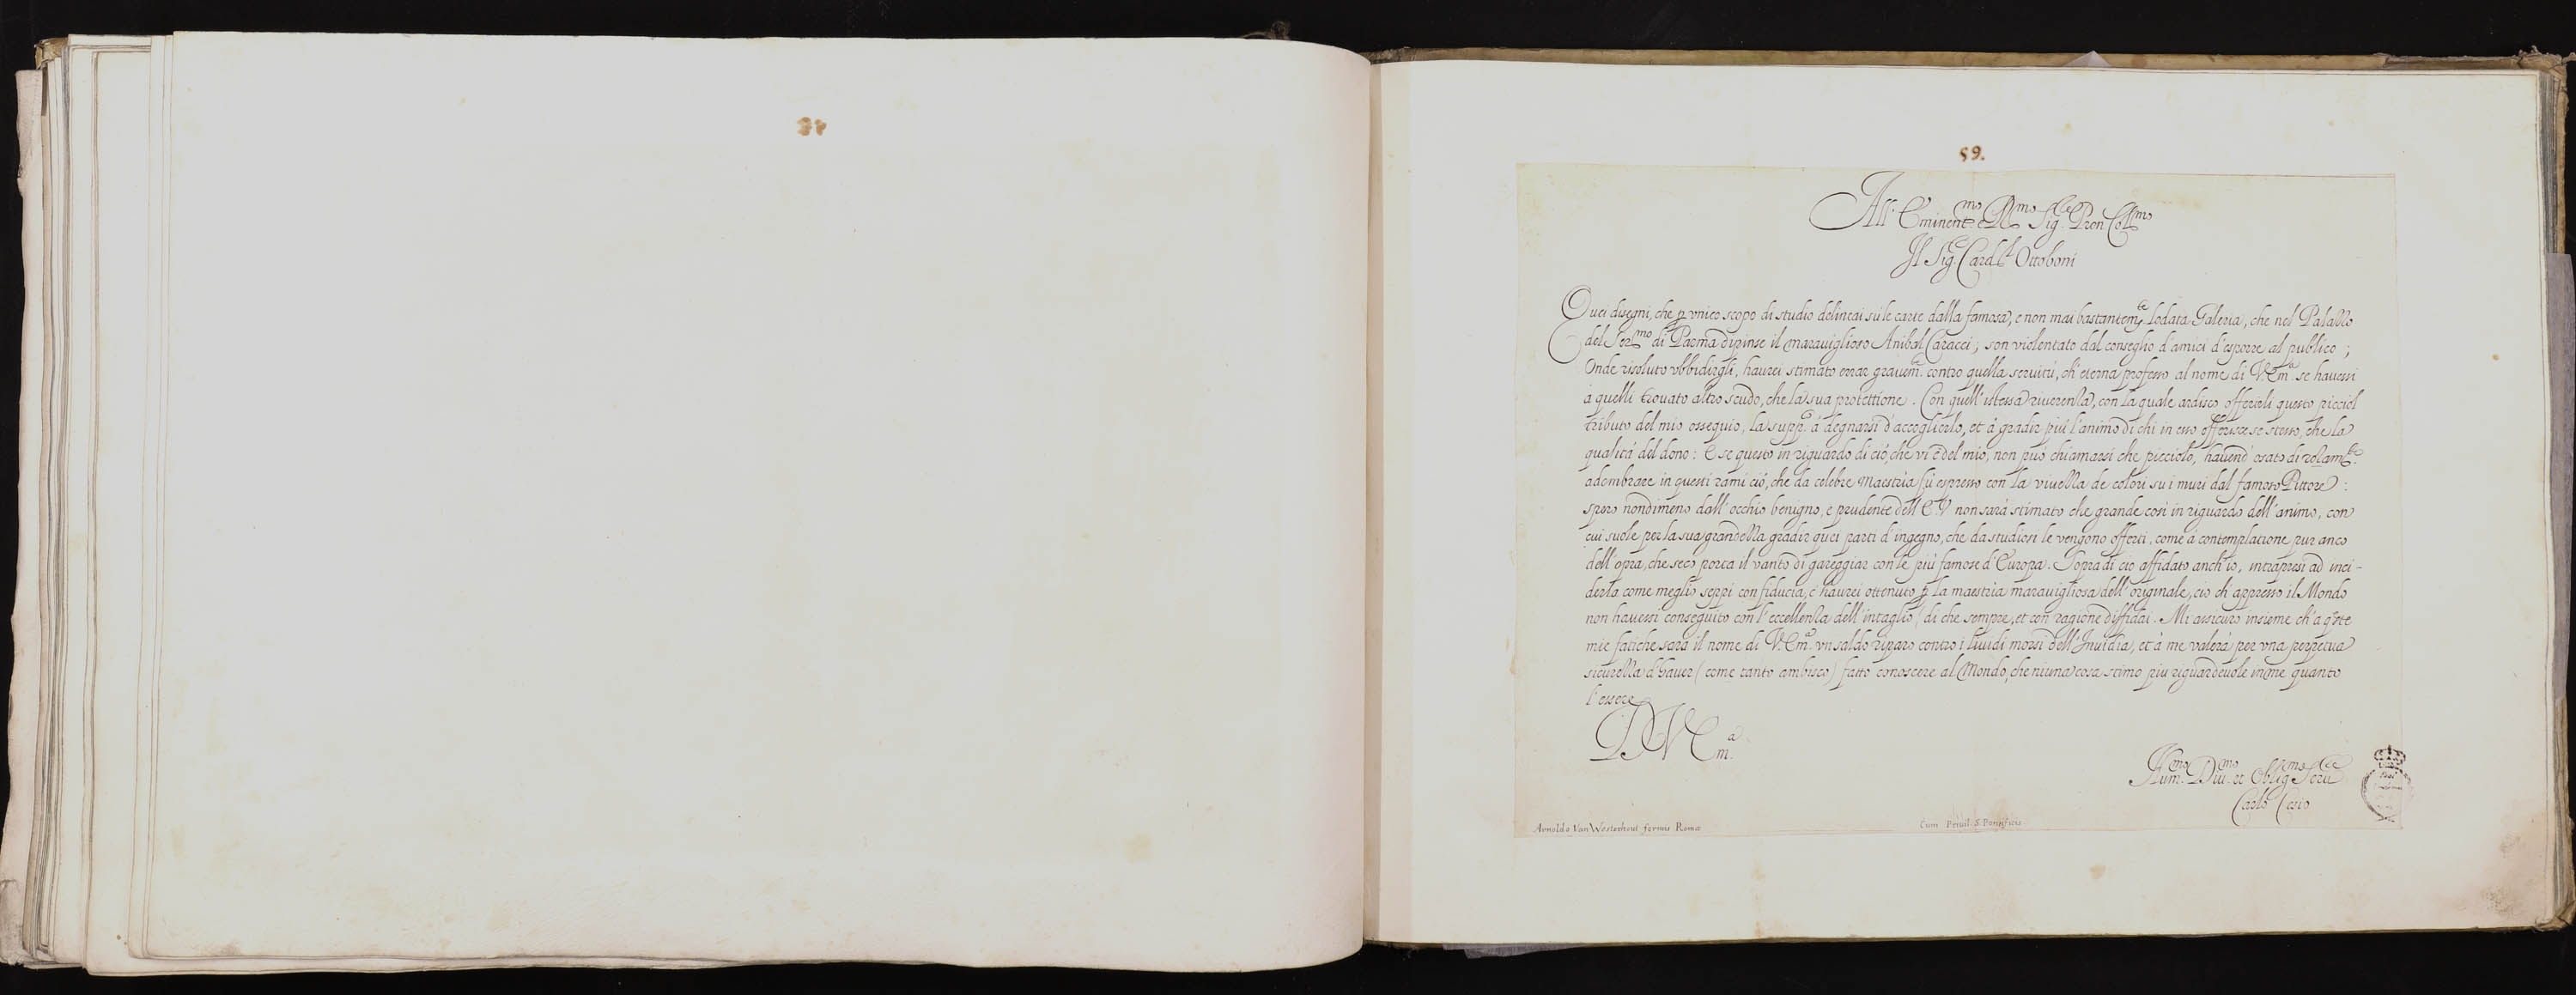 59.
All' Eminent.mo e R.mo Sig.re Pron Coll.mo
Il Sig.r Card.l Ottoboni
Quei disegni, che p vnico scopo di studio delineai sù le carte dalla famosa, e non mai bastantem.te lodata Galeria, che nel Palazzo
del Ser.mo di Parma dipinse il marauiglioso Anibal Caracci; son violentato dal conseglio d'amici d'esporre al publico;
Onde risoluto vbbidirgli, haurei stimato errar grauem.te contro quella seruitù, ch'eterna professo al nome di V. Em.a se hauessi
à quelli trouato altro scudo, che la sua protettione. Con quell'istessa riuerenza, con la quale ardisco offerirli questo picciol
tributo del mio ossequio, la supp.co à degnarsi d'accoglierlo, et à gradir più l'animo di chi in esso offerisce se stesso, che la
qualità del dono: E se questo in riguardo di ciò, che vi è del mio, non può chiamarsi che picciolo, hauend' osato di
adombrare in questi rami ciò, che da celebre Maestria fù espresso con la viuezza de colori su i muri dal famoso Pittore:
spero nondimeno dall'occhio benigno, e prudente dell'E. V. non sarà stimato che grande così in riguardo dell'animo, con
cui suole per la sua grandezza gradir quei parti d'ingegno, che da studiosi le vengono offerti, come à contemplatione pur anco
dell'opra, che seco porta il vanto di gareggiar con le più famose d'Europa. Sopra di ciò affidato anch'io, intrapresi ad inci-
derla come meglio seppi con fiducia, c'haurei ottenuto p la maestria marauigliosa dell'originale, ciò ch'appresso il Mondo
non hauessi conseguito con l'eccellenza dell'intaglio (di che sempre, et con ragione diffidai. Mi assicuro insieme ch'a q.ste
mie fatiche sarà il nome di V. Em.a vn saldo riparo contro i liuidi morsi dell'Inuidia, et à me valerà per vna perpetua
sicurezza d'hauer (come tanto ambisco) fatto conoscere al Mondo, che niuna cosa stimo più riguardeuole in me quanto
l'essere
D. V. Em.a
Hum.mo Diu.mo et Oblig.mo Seru.re
Carlo Cesio
Arnoldo Van Westerhout formis Romæ
Cum Priuil. S. Pontificis